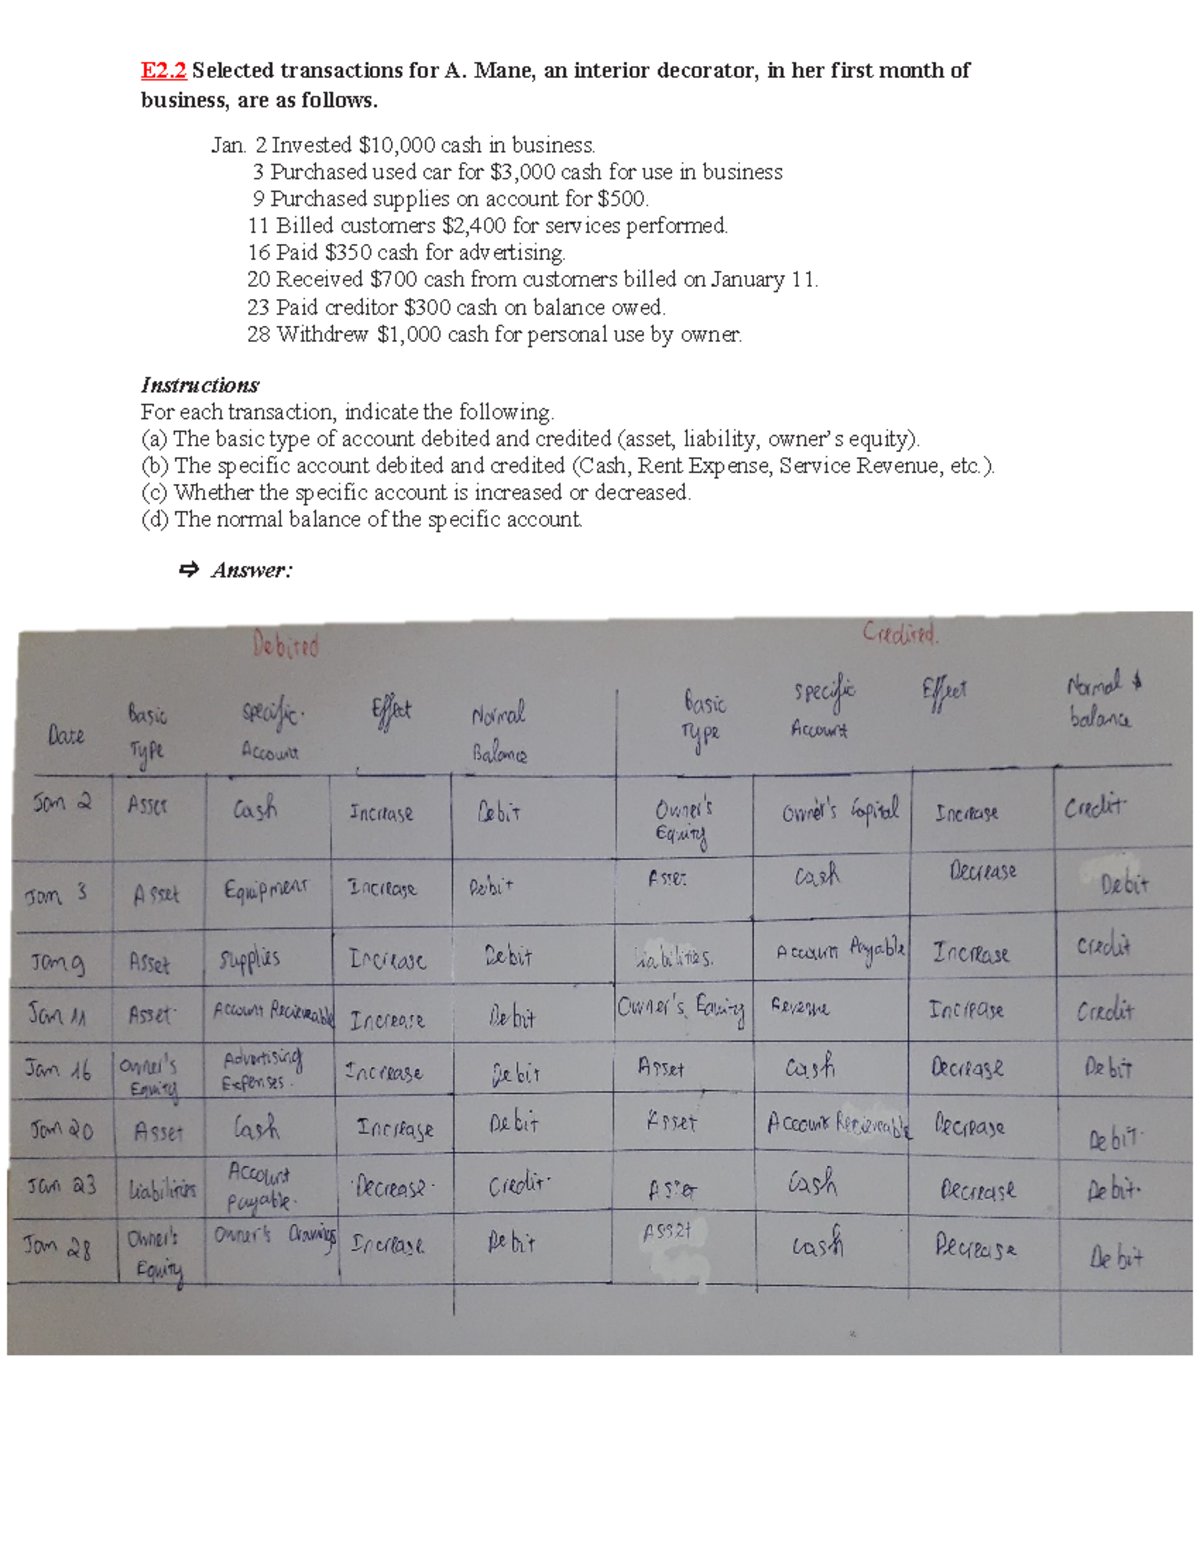 E2.2 Selected transactions for A. Mane, an interior decorator, in her first month of
business, are as follows.
Jan. 2 Invested $10,000 cash in business.
3 Purchased used car for $3,000 cash for use in business
9 Purchased supplies on account for $500.
11 Billed customers $2,400 for services performed.
16 Paid $350 cash for advertising.
20 Received $700 cash from customers billed on January 11.
23 Paid creditor $300 cash on balance owed.
28 Withdrew $1,000 cash for personal use by owner.
Instructions
For each transaction, indicate the following.
(a) The basic type of account debited and credited (asset, liability, owner's equity).
(b) The specific account debited and credited (Cash, Rent Expense, Service Revenue, etc.).
(c) Whether the specific account is increased or decreased.
(d) The normal balance of the specific account.
⇨ Answer:
Debited Credired.
Date Basic Type specific. Account Effect Normal Balance Basic Type specific Account Effect Normal $ balance
Jan 2 Asset Cash Increase Debit Owner's Equity Owner's Capital Increase Credit
Jan 3 Asset Equipment Increase Debit Asset Cash Decrease Debit
Jan 9 Asset supplies Increase Debit Liabilities. Account Payable Increase Credit
Jan 11 Asset Account Recieveable Increase Debit Owner's Equity Revenue Increase Credit
Jan 16 Owner's Equity Advertising Expenses. Increase Debit Asset Cash Decrease Debit
Jan 20 Asset Cash Increase Debit Asset Account Recieveable Decrease Debit
Jan 23 Liabilities Account Payable. Decrease Credit Asset Cash Decrease Debit
Jan 28 Owner's Equity Owner's Drawings Increase Debit Asset Cash Decrease Debit